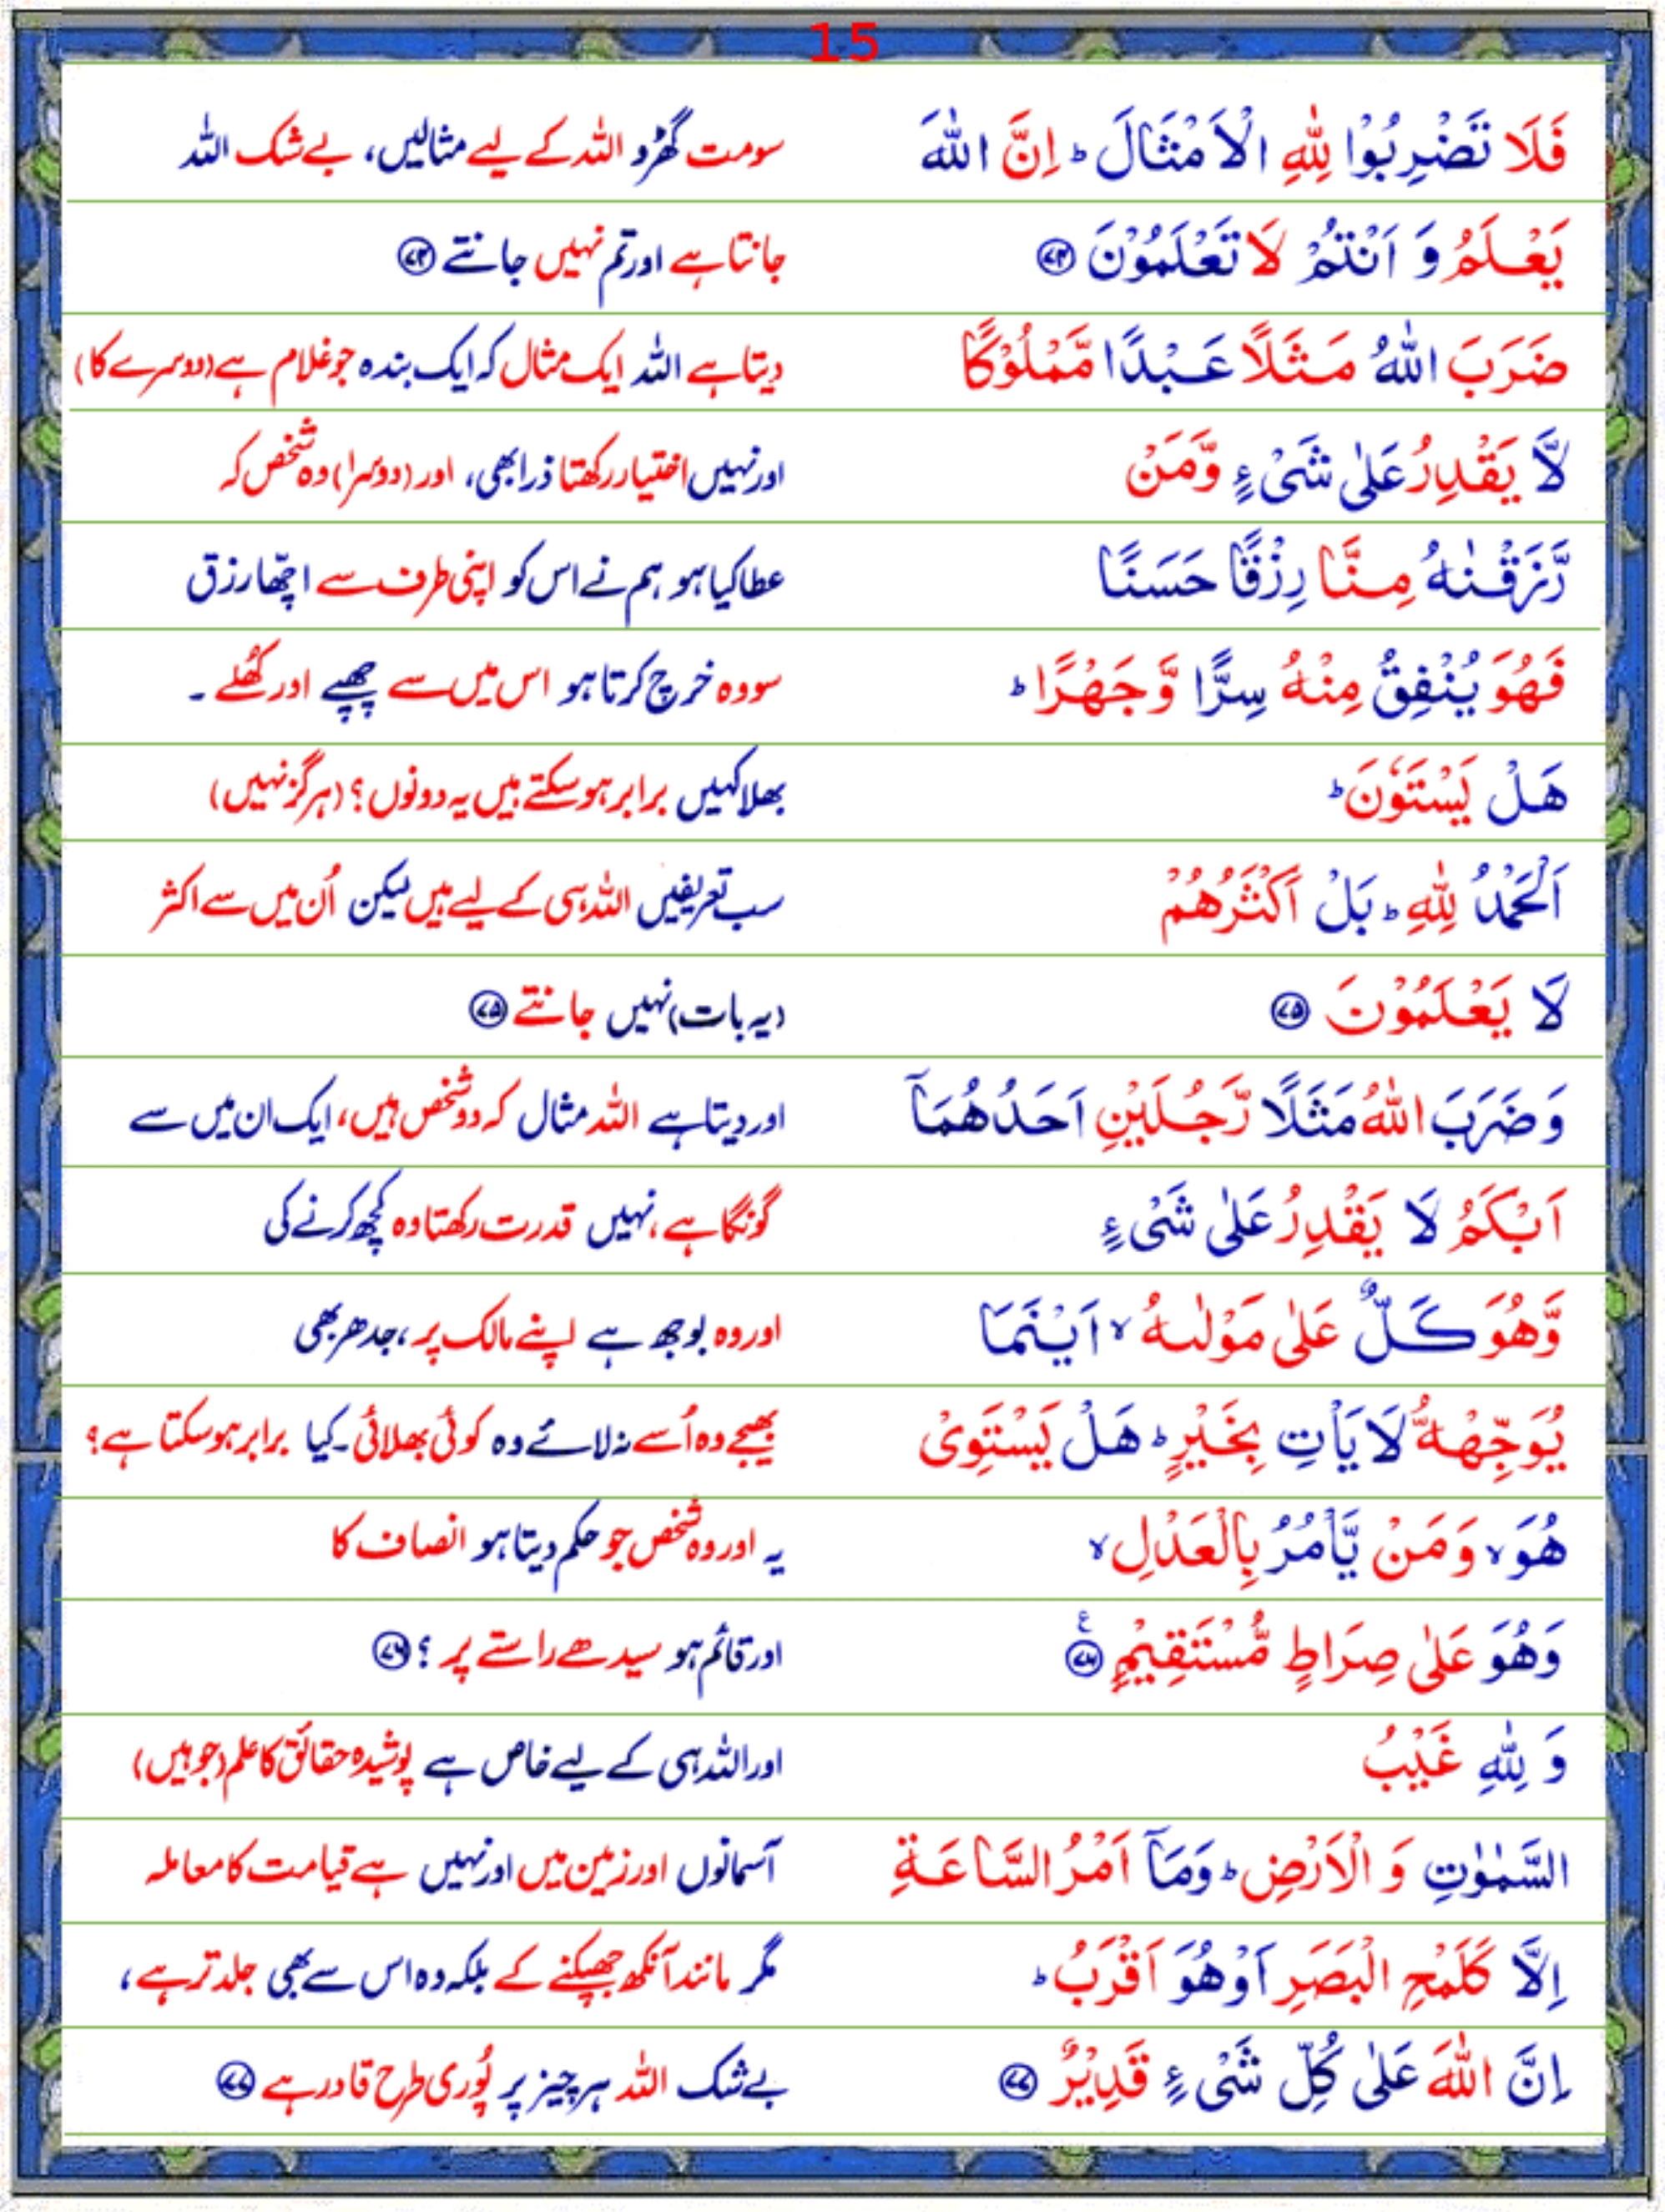 15
فَلَا تَضْرِبُوْا لِلّٰهِ الْاَمْثَالَ ؕ اِنَّ اللّٰهَ سو مت گھڑو اللہ کے لیے مثالیں، بے شک اللہ
يَعْلَمُ وَ اَنْتُمْ لَا تَعْلَمُوْنَ ﴿۷۴﴾ جانتا ہے اور تم نہیں جانتے ﴿۷۴﴾
ضَرَبَ اللّٰهُ مَثَلًا عَبْدًا مَّمْلُوْكًا دیتا ہے اللہ ایک مثال کہ ایک بندہ جو غلام ہے (دوسرے کا)
لَّا يَقْدِرُ عَلٰى شَىْءٍ وَّمَنْ اور نہیں اختیار رکھتا ذرا بھی، اور (دوسرا) وہ شخص کہ
رَّزَقْنٰهُ مِنَّا رِزْقًا حَسَنًا عطا کیا ہو ہم نے اس کو اپنی طرف سے اچّھا رزق
فَهُوَ يُنْفِقُ مِنْهُ سِرًّا وَّ جَهْرًا ؕ سو وہ خرچ کرتا ہو اس میں سے چھپے اور کُھلے ۔
هَلْ يَسْتَوٗنَ ؕ بھلا کہیں برابر ہو سکتے ہیں یہ دونوں؟ (ہرگز نہیں)
اَلْحَمْدُ لِلّٰهِ ؕ بَلْ اَكْثَرُهُمْ سب تعریفیں اللہ ہی کے لیے ہیں لیکن اُن میں سے اکثر
لَا يَعْلَمُوْنَ ﴿۷۵﴾ (یہ بات) نہیں جانتے ﴿۷۵﴾
وَ ضَرَبَ اللّٰهُ مَثَلًا رَّجُلَيْنِ اَحَدُهُمَاۤ اور دیتا ہے اللہ مثال کہ دو شخص ہیں، ایک ان میں سے
اَبْكَمُ لَا يَقْدِرُ عَلٰى شَىْءٍ گونگا ہے، نہیں قدرت رکھتا وہ کچھ کرنے کی
وَّهُوَ كَلٌّ عَلٰى مَوْلٰىهُ ۙ اَيْنَمَا اور وہ بوجھ ہے اپنے مالک پر، جدھر بھی
يُوَجِّهْهُّ لَا يَاْتِ بِخَيْرٍ ؕ هَلْ يَسْتَوِىْ بھیجے وہ اُسے نہ لائے وہ کوئی بھلائی۔ کیا برابر ہو سکتا ہے؟
هُوَ ۙ وَ مَنْ يَّاْمُرُ بِالْعَدْلِ ۙ یہ اور وہ شخص جو حکم دیتا ہو انصاف کا
وَهُوَ عَلٰى صِرَاطٍ مُّسْتَقِيْمٍ ﴿۷۶﴾ ع اور قائم ہو سیدھے راستے پر؟ ﴿۷۶﴾
وَ لِلّٰهِ غَيْبُ اور اللہ ہی کے لیے خاص ہے پوشیدہ حقائق کا علم (جو ہیں)
السَّمٰوٰتِ وَ الْاَرْضِ ؕ وَمَاۤ اَمْرُ السَّاعَةِ آسمانوں اور زمین میں اور نہیں ہے قیامت کا معاملہ
اِلَّا كَلَمْحِ الْبَصَرِ اَوْ هُوَ اَقْرَبُ ؕ مگر مانند آنکھ جھپکنے کے بلکہ وہ اس سے بھی جلد تر ہے،
اِنَّ اللّٰهَ عَلٰى كُلِّ شَىْءٍ قَدِيْرٌ ﴿۷۷﴾ بے شک اللہ ہر چیز پر پُوری طرح قادر ہے ﴿۷۷﴾